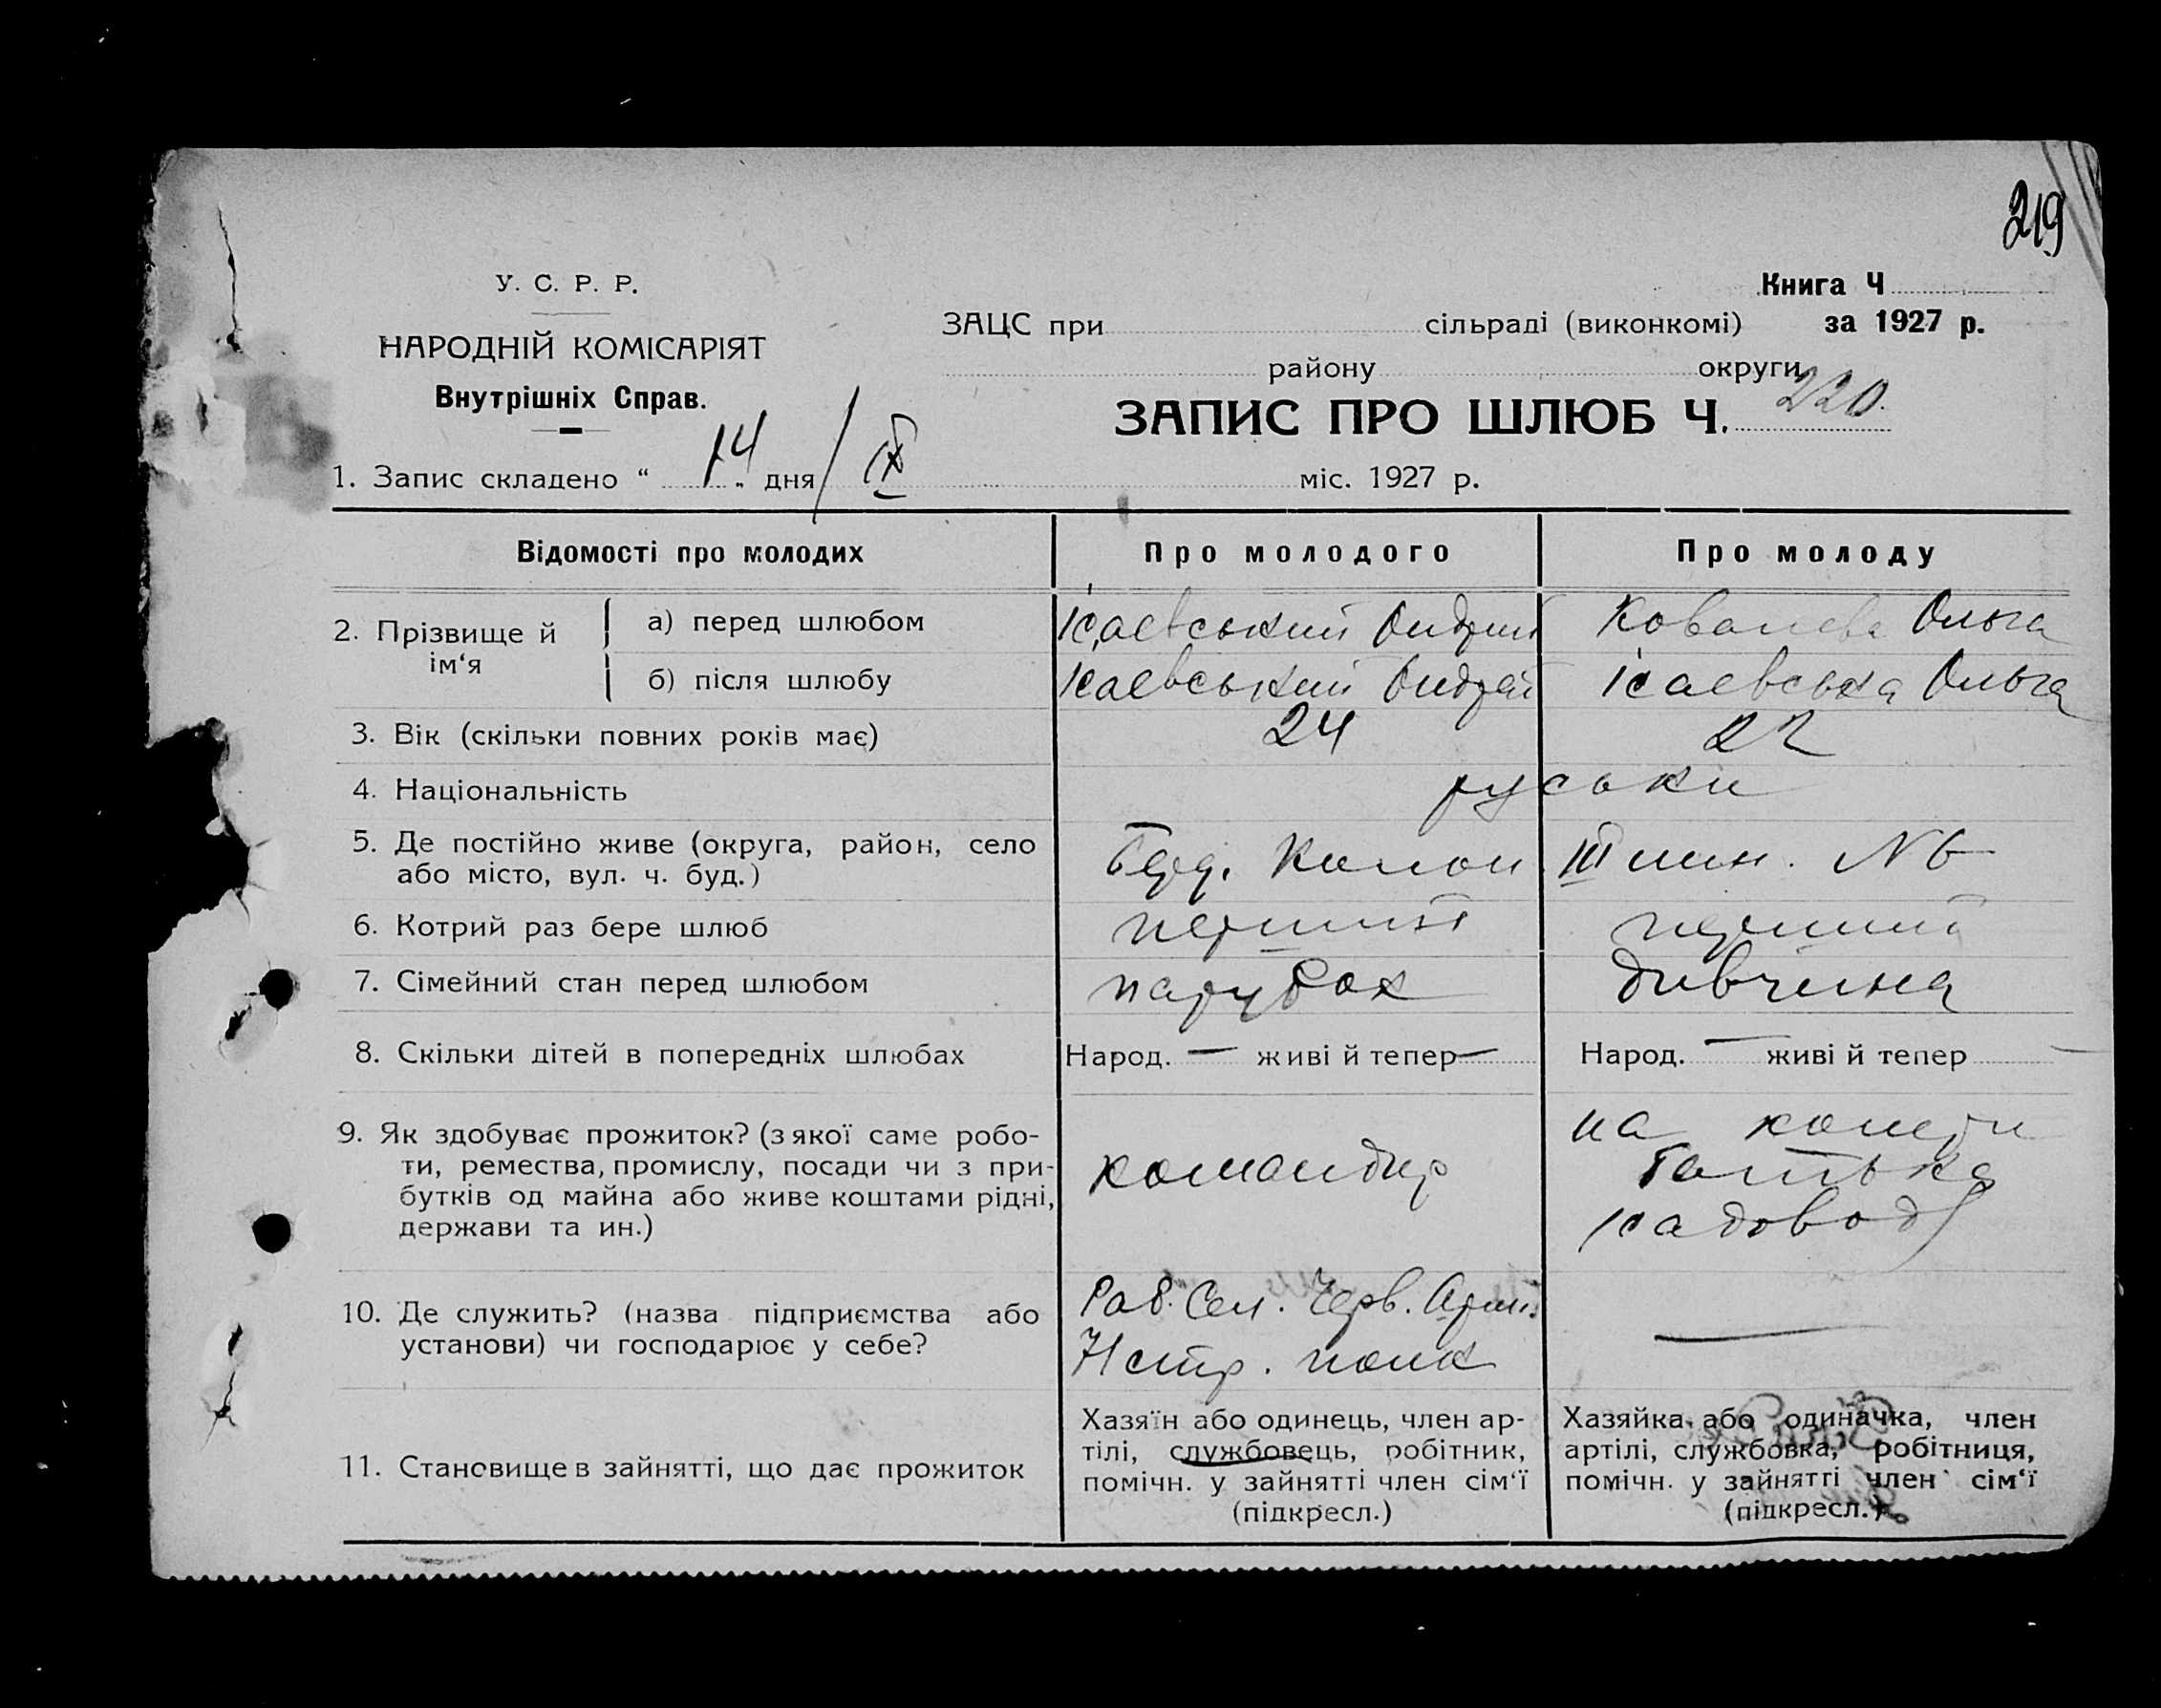 219
У. С. Р. Р.
НАРОДНІЙ КОМІСАРІЯТ
Внутрішніх Справ.
Книга Ч
ЗАЦС при сільраді (виконкомі) за 1927 р.
району округи
ЗАПИС ПРО ШЛЮБ Ч. 220.
1. Запис складено “ 14 „ дня / IX міс. 1927 р.
Відомості про молодих Про молодого Про молоду
2. Прізвище й ім‘я
а) перед шлюбом Ісаевський Ондрий Ковалева Ольга
б) після шлюбу Ісаевський Ондрей Ісаевська Ольга
3. Вік (скільки повних років має) 24 22
4. Національність руськи
5. Де постійно живе (округа, район, село
або місто, вул. ч. буд.) Берд. Колон III лин. № 6
6. Котрий раз бере шлюб перший перший
7. Сімейний стан перед шлюбом парубок дивчина
8. Скільки дітей в попередніх шлюбах Народ. — живі й тепер — Народ. — живі й тепер —
9. Як здобуває прожиток? (з якої саме робо-
ти, ремества, промислу, посади чи з при-
бутків од майна або живе коштами рідні,
держави та ин.)
командир
на
батька
садовод
10. Де служить? (назва підприємства або
установи) чи господарює у себе?
Роб. Сел. Черв. Арми.
стр. полк
—
11. Становище в зайнятті, що дає прожиток
Хазяїн або одинець, член ар-
тілі, службовець, робітник,
помічн. у зайнятті член сім‘ї
(підкресл.)
Хазяйка або одиначка, член
артілі, службовка, робітниця,
помічн. у зайнятті член сім‘ї
(підкресл.)